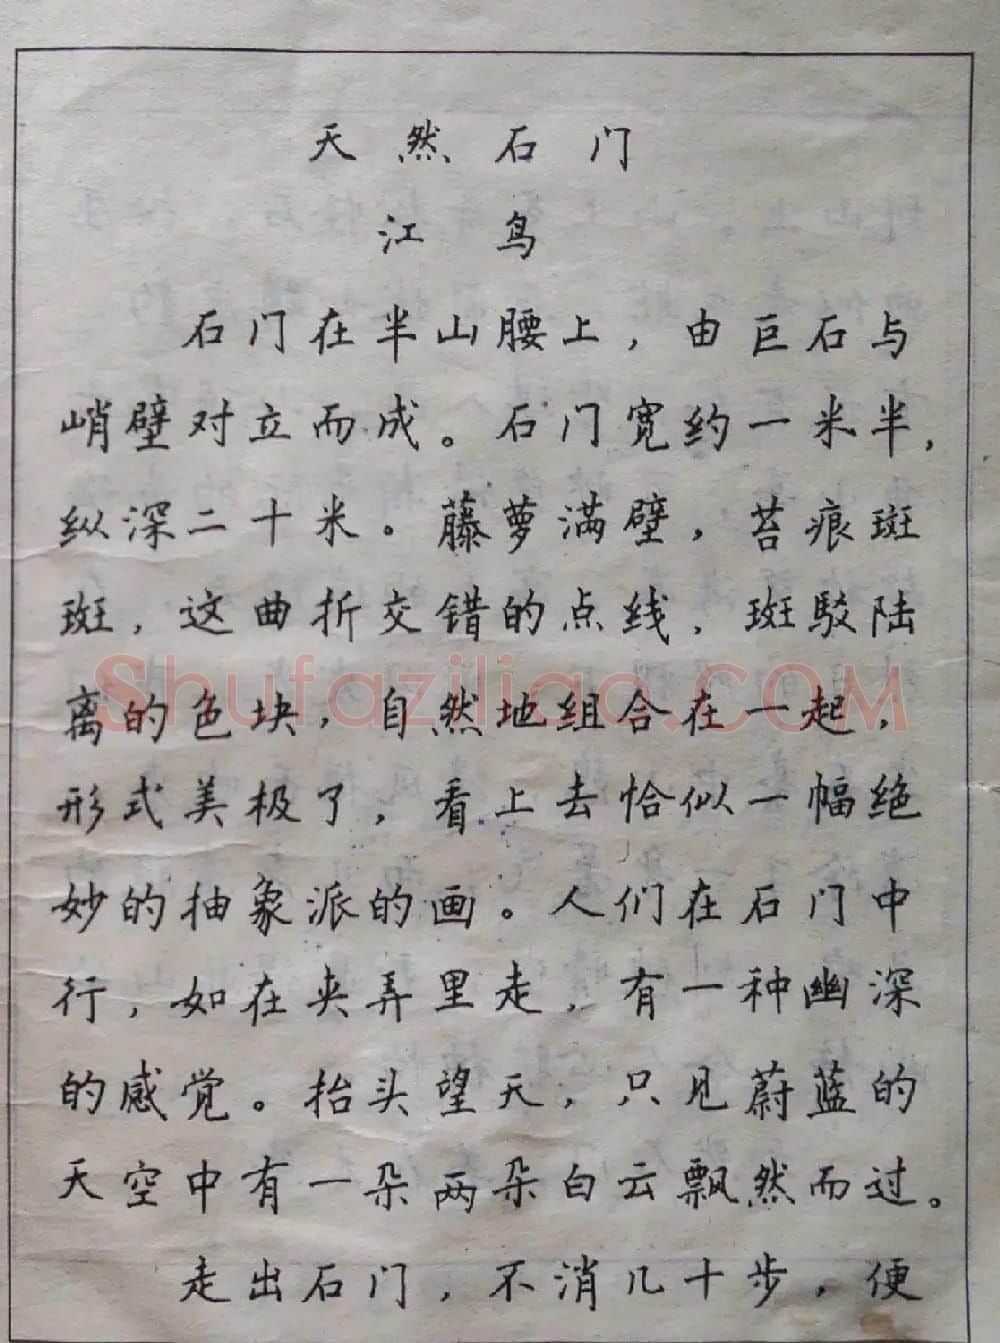 天然石门
江鸟
石门在半山腰上，由巨石与
峭壁对立而成。石门宽约一米半，
纵深二十米。藤萝满壁，苔痕斑
斑，这曲折交错的点线，斑驳陆
离的色块，自然地组合在一起，
形式美极了，看上去恰似一幅绝
妙的抽象派的画。人们在石门中
行，如在夹弄里走，有一种幽深
的感觉。抬头望天，只见蔚蓝的
天空中有一朵两朵白云飘然而过。
走出石门，不消几十步，便
Shufaziliao.COM